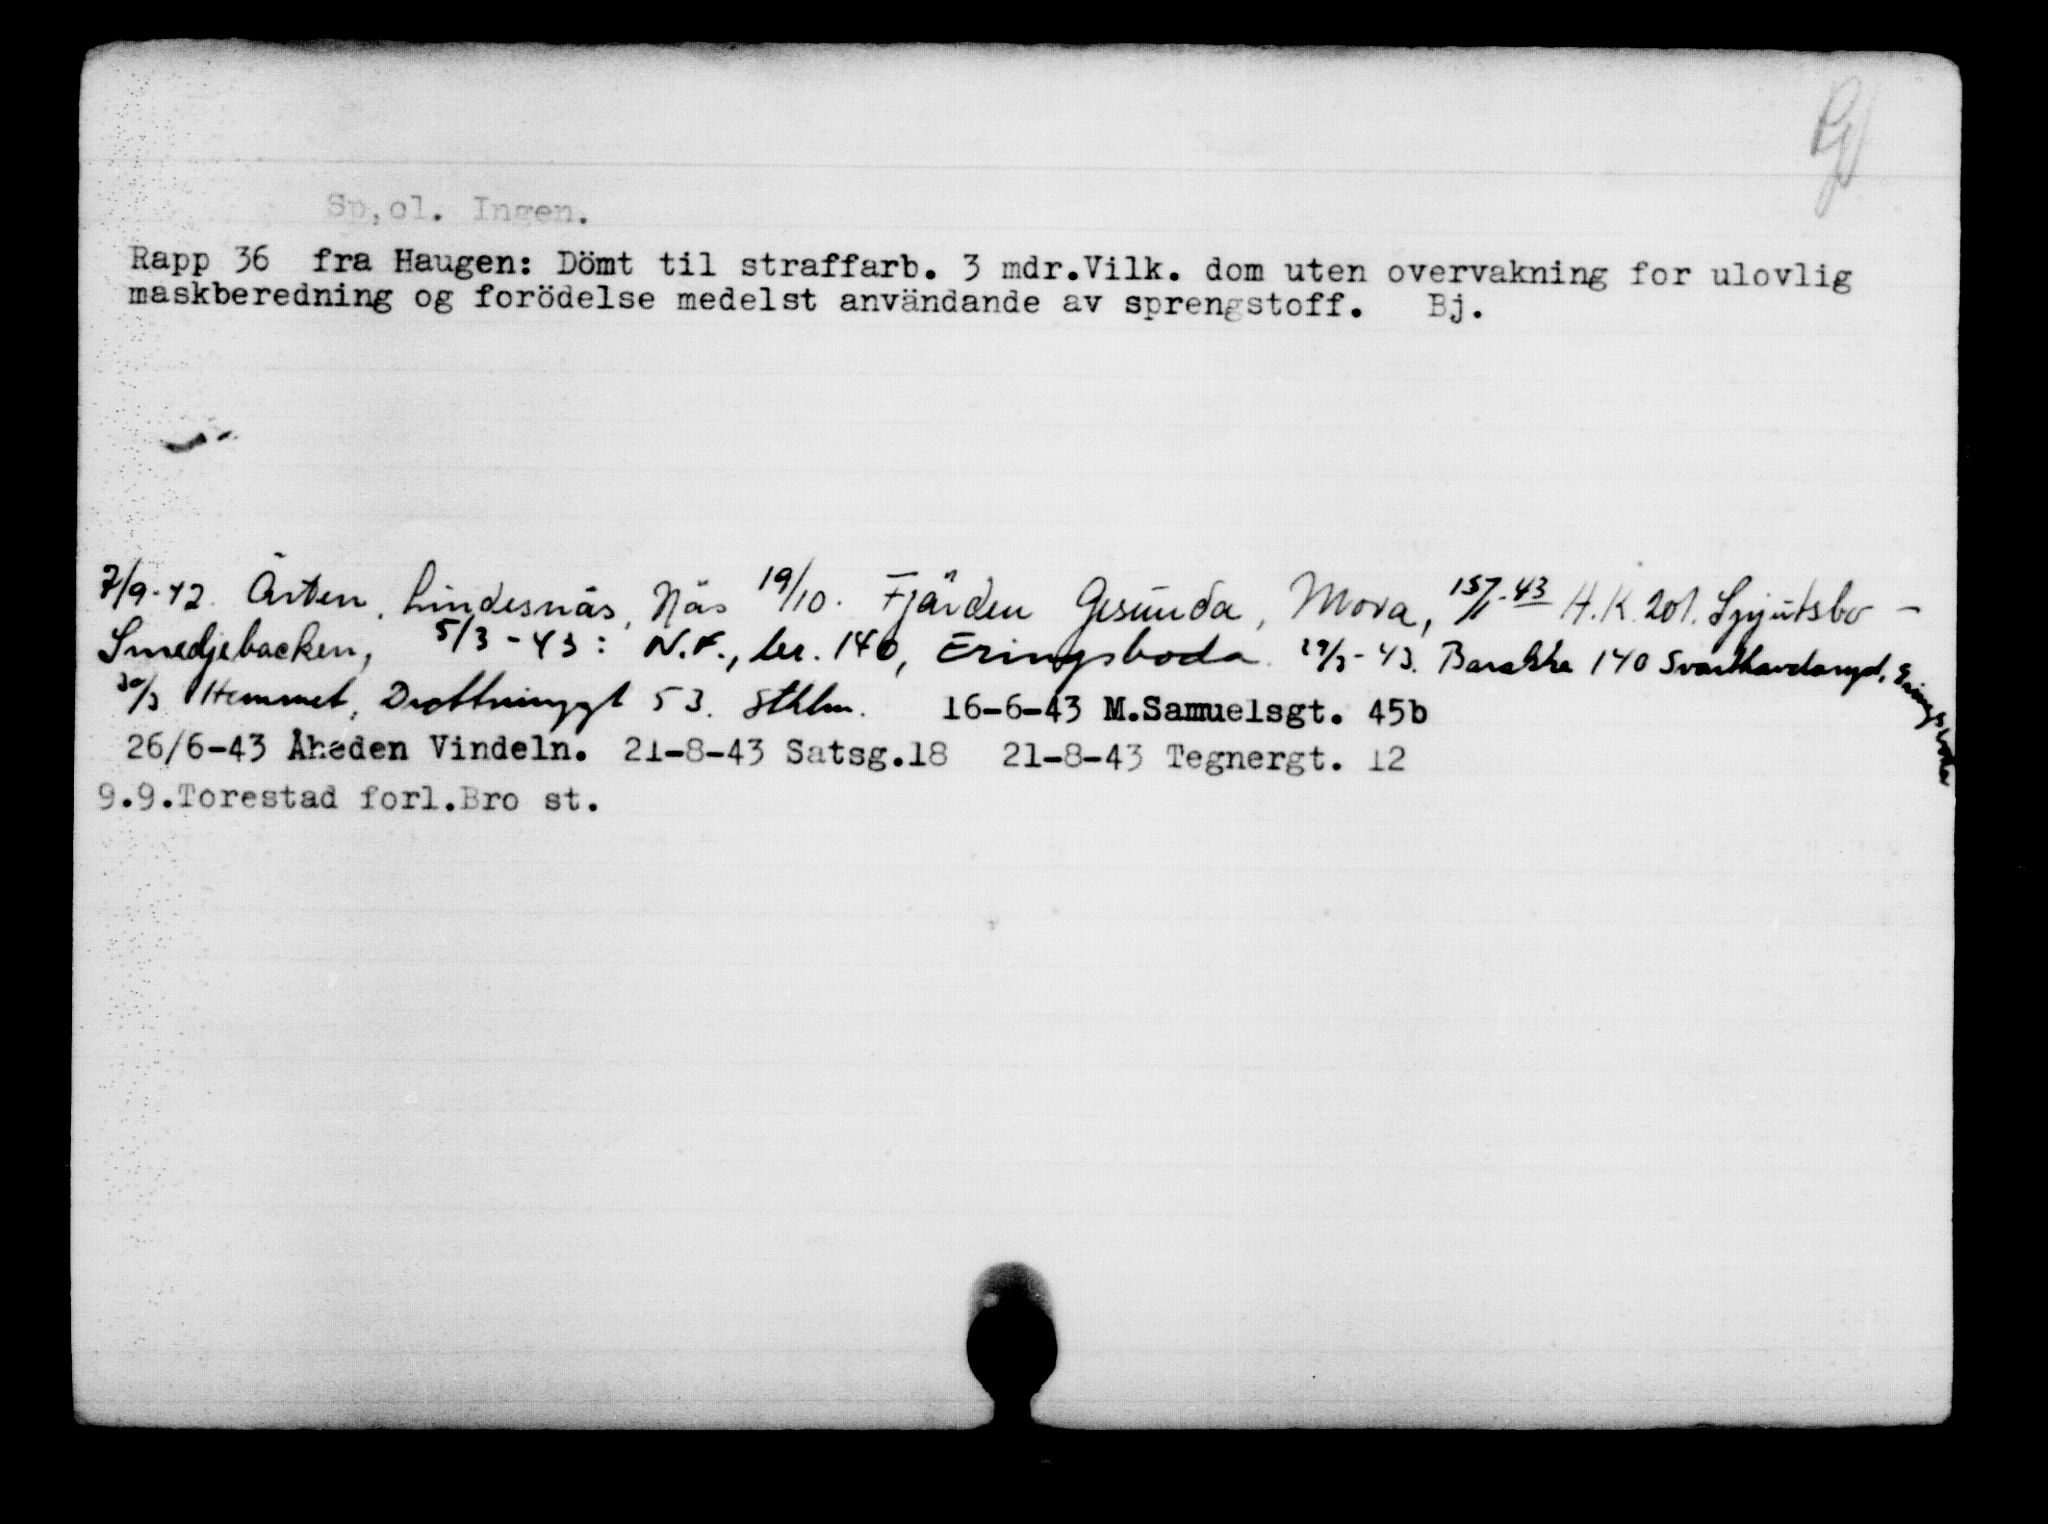 Sp,ol. Ingen.
Rapp 36 fra Haugen: Dömt til straffarb. 3 mdr.Vilk. dom uten overvakning for ulovlig
maskberedning og forödelse medelst användande av sprengstoff. Bj.
7/9-42. Årten, Lindesnäs, Näs 19/10. Fjärden Gesunda, Mora, 15/1-43 H.K. 201. Spjutsbo -
Smedjebacken, 5/3-43: N.F., br. 140, Eringsboda. 29/3-43. Barakke 140 Svarthavdaryd, Eringsboda
30/3 Hemmet, Drottninggt 53. Sthlm. 16-6-43 M.Samuelsgt. 45b
26/6-43 Åheden Vindeln. 21-8-43 Satsg.18 21-8-43 Tegnergt. 12
9.9.Torestad forl.Bro st.